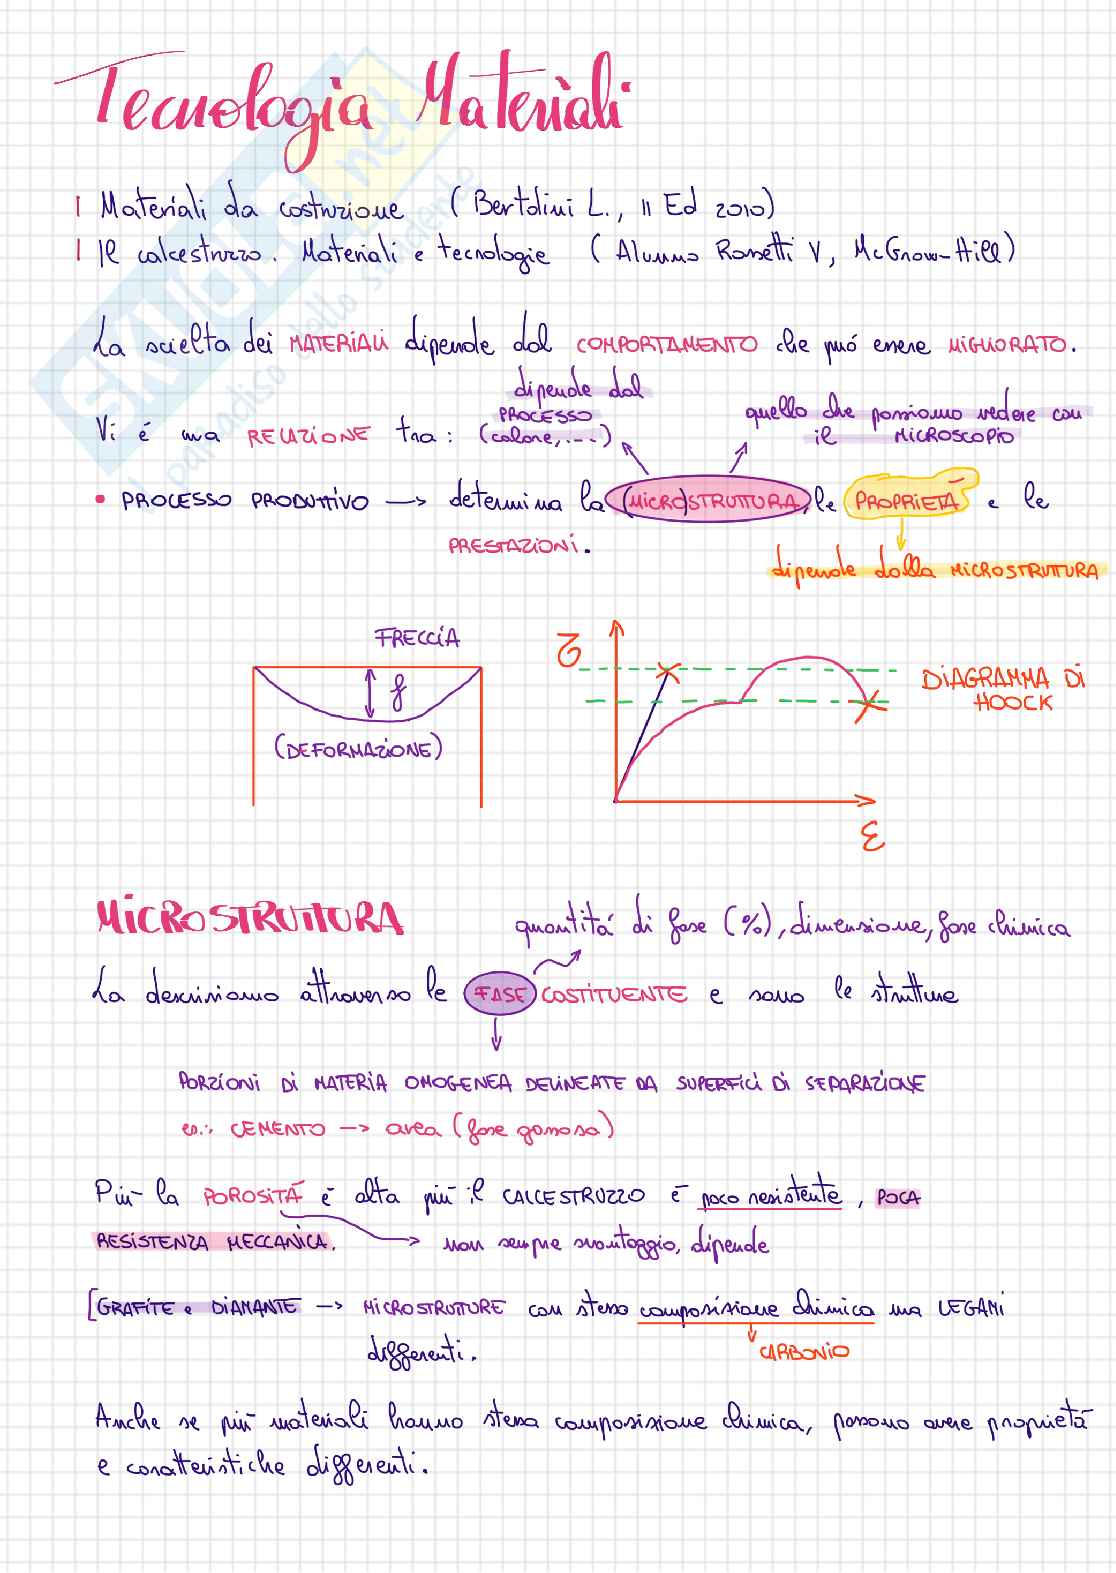 Tecnologia Materiali
| Materiali da costruzione (Bertolini L., II Ed 2010)
| Il calcestruzzo. Materiali e tecnologie (Alunno Rossetti V, McGraw-Hill)
La scielta dei MATERIALI dipende dal COMPORTAMENTO che può essere MIGLIORATO.
dipende dal
PROCESSO
(calore,....)
quello che possiamo vedere con
il MICROSCOPIO
Vi é una RELAZIONE tra:
• PROCESSO PRODUTTIVO → determina la (MICRO)STRUTTURA, le PROPRIETÀ e le
PRESTAZIONI.
dipende dalla MICROSTRUTTURA
FRECCIA
f
(DEFORMAZIONE)
σ
DIAGRAMMA DI
HOOCK
ε
MICROSTRUTTURA
quantitá di fase (%), dimensione, fase chimica
La descriviamo attraverso le FASE COSTITUENTE e sono le strutture
PORZIONI DI MATERIA OMOGENEA DELINEATE DA SUPERFICI DI SEPARAZIONE
es.: CEMENTO → area (fase gassosa)
Più la POROSITÀ è alta più il CALCESTRUZZO è poco resistente, POCA
RESISTENZA MECCANICA. → non sempre svantaggio, dipende
[GRAFITE e DIAMANTE → MICROSTRUTTURE con stessa composizione chimica ma LEGAMI
differenti.
CARBONIO
Anche se più materiali hanno stessa composizione chimica, possono avere proprietà
e caratteristiche differenti.
SKUOLA.net
il paradiso dello studente